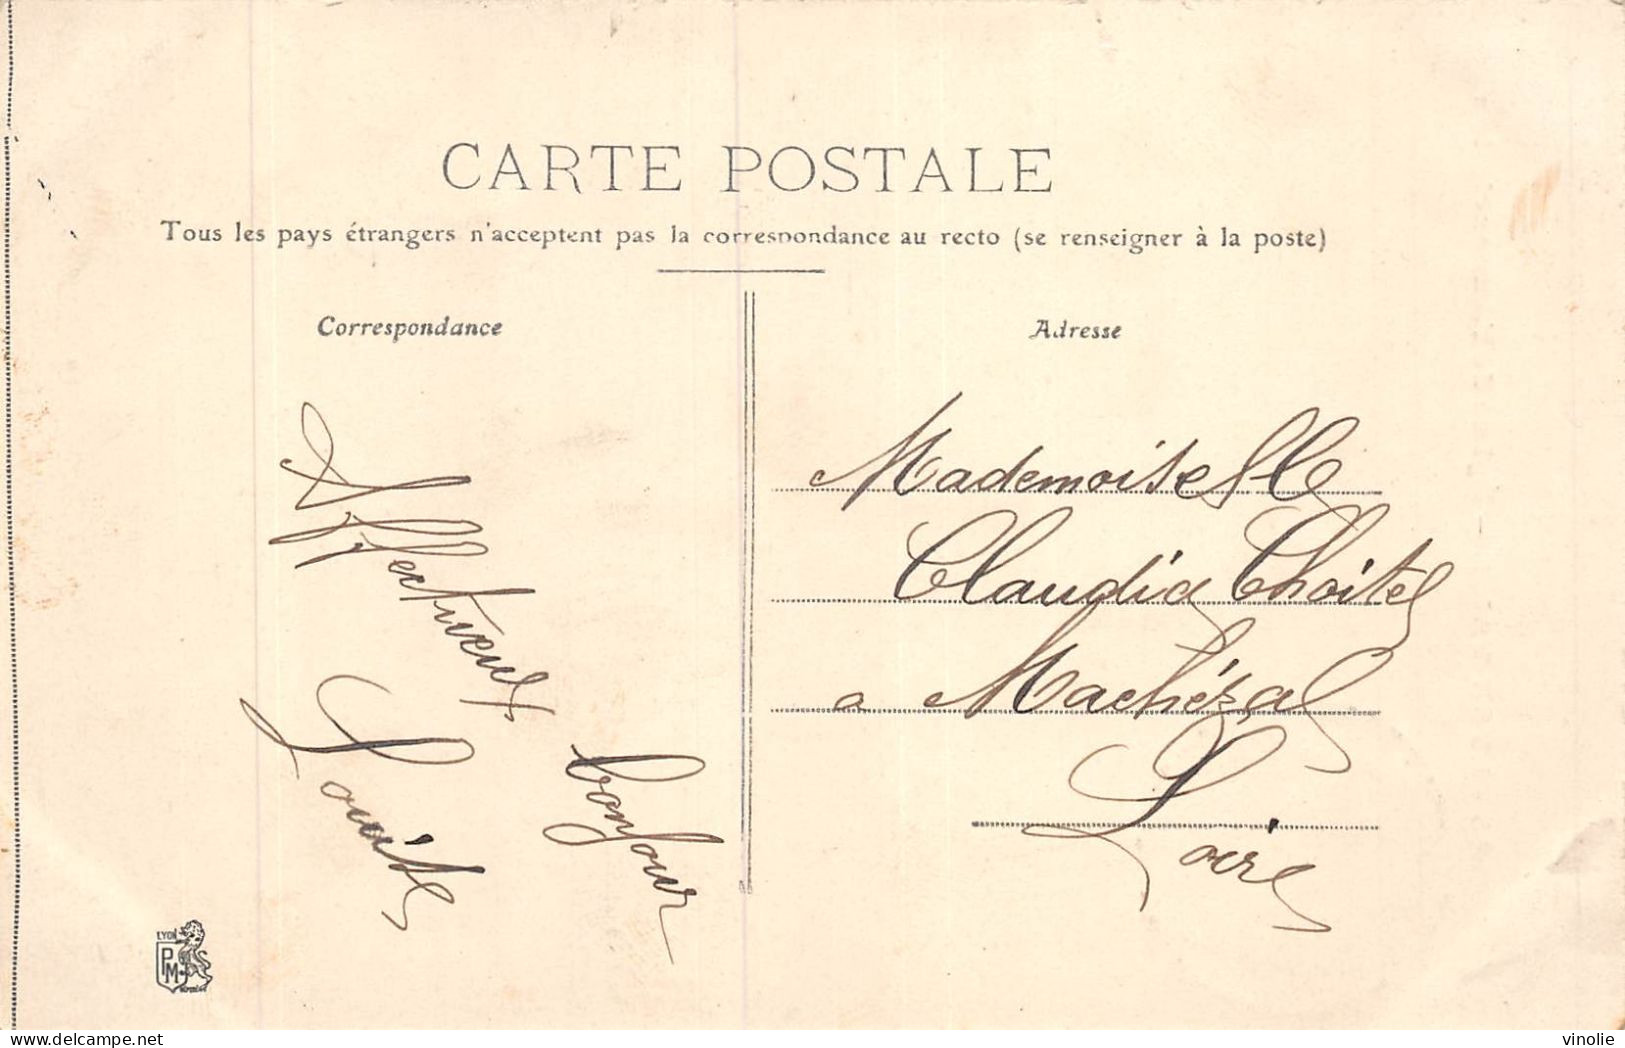 CARTE POSTALE
Tous les pays étrangers n'acceptent pas la correspondance au recto (se renseigner à la poste)
Correspondance
Affectueux
bonjour
Adresse
Mademoiselle
Claudia
a Machézal
Loire
LYON
PM
delcampe.net
vinolie